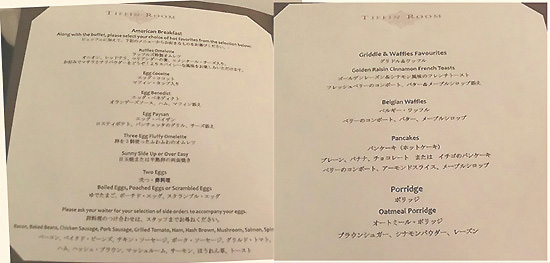 TIFFIN ROOM
American Breakfast
Along with the buffet, please select your choice of hot favorites from the selection below.
Raffles Omelette
Egg Cocotte
エッグ・ココット
Egg Benedict
エッグ・ベネディクト
オランデーズソース、ハム、マフィン添え
Egg Paysan
エッグ・ペイザン
Three Egg Fluffy Omelette
卵を3個使ったふわふわのオムレツ
Sunny Side Up or Over Easy
目玉焼きまたは半熟卵の両面焼き
Two Eggs
Boiled Eggs, Poached Eggs or Scrambled Eggs
ゆでたまご、ポーチド・エッグ、スクランブル・エッグ
Please ask your waiter for your selection of side orders to accompany your eggs.
卵料理のつけ合わせは、スタッフまでお尋ねください。
Bacon, Baked Beans, Chicken Sausage, Pork Sausage, Grilled Tomato, Ham, Hash Brown, Mushroom, Salmon,
ベーコン、ベイクド・ビーンズ、チキン・ソーセージ、ポーク・ソーセージ、グリルド・トマト、
ハム、ハッシュ・ブラウン、マッシュルーム、サーモン、ほうれん草、トースト
TIFFIN ROOM
Griddle & Waffles Favourites
グリドル&ワッフル
Golden Raisin Cinnamon French Toasts
ゴールデンレーズン&シナモン風味のフレンチトースト
フレッシュベリーのコンポート、バター&メープルシロップ添え
Belgian Waffles
ベルギー・ワッフル
ベリーのコンポート、バター、メープルシロップ
Pancakes
パンケーキ (ホットケーキ)
プレーン、バナナ、チョコレート または イチゴのパンケーキ
ベリーのコンポート、アーモンドスライス、メープルシロップ
Porridge
ポリッジ
Oatmeal Porridge
オートミール・ポリッジ
ブラウンシュガー、シナモンパウダー、レーズン